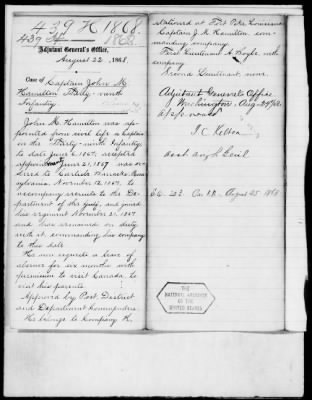 439 H 1868.
439 H 1868
Adjutant General's Office,
August 22, 1868.
Case of Captain John M.
Hamilton Thirty-ninth
Infantry.
John M. Hamilton was ap-
pointed from civil life a Captain
in the Thirty-ninth Infantry
to date June 1867, accepted
appointment June 21, 1867 was or-
dered to Carlisle Barracks Penn-
sylvania November 12, 1867, to
accompany recruits to the De-
partment of the Gulf, and joined
his regiment November 21, 1867
and has remained on duty
with it commanding his company
to this date.
He now requests a leave of
absence for six months with
permission to visit Canada, to
visit his parents.
Approved by Post, District
and Department Commanders.
He belongs to Company K,
stationed at Fort Pike Louisiana
Captain J. M. Hamilton com-
manding company.
First Lieutenant
company.
Second Lieutenant
Adjutant Generals Office
Washington, Aug 24/68.
J C Kelton
Asst Adjt Genl
August 25 1868
THE
NATIONAL ARCHIVES
OF THE
UNITED STATES